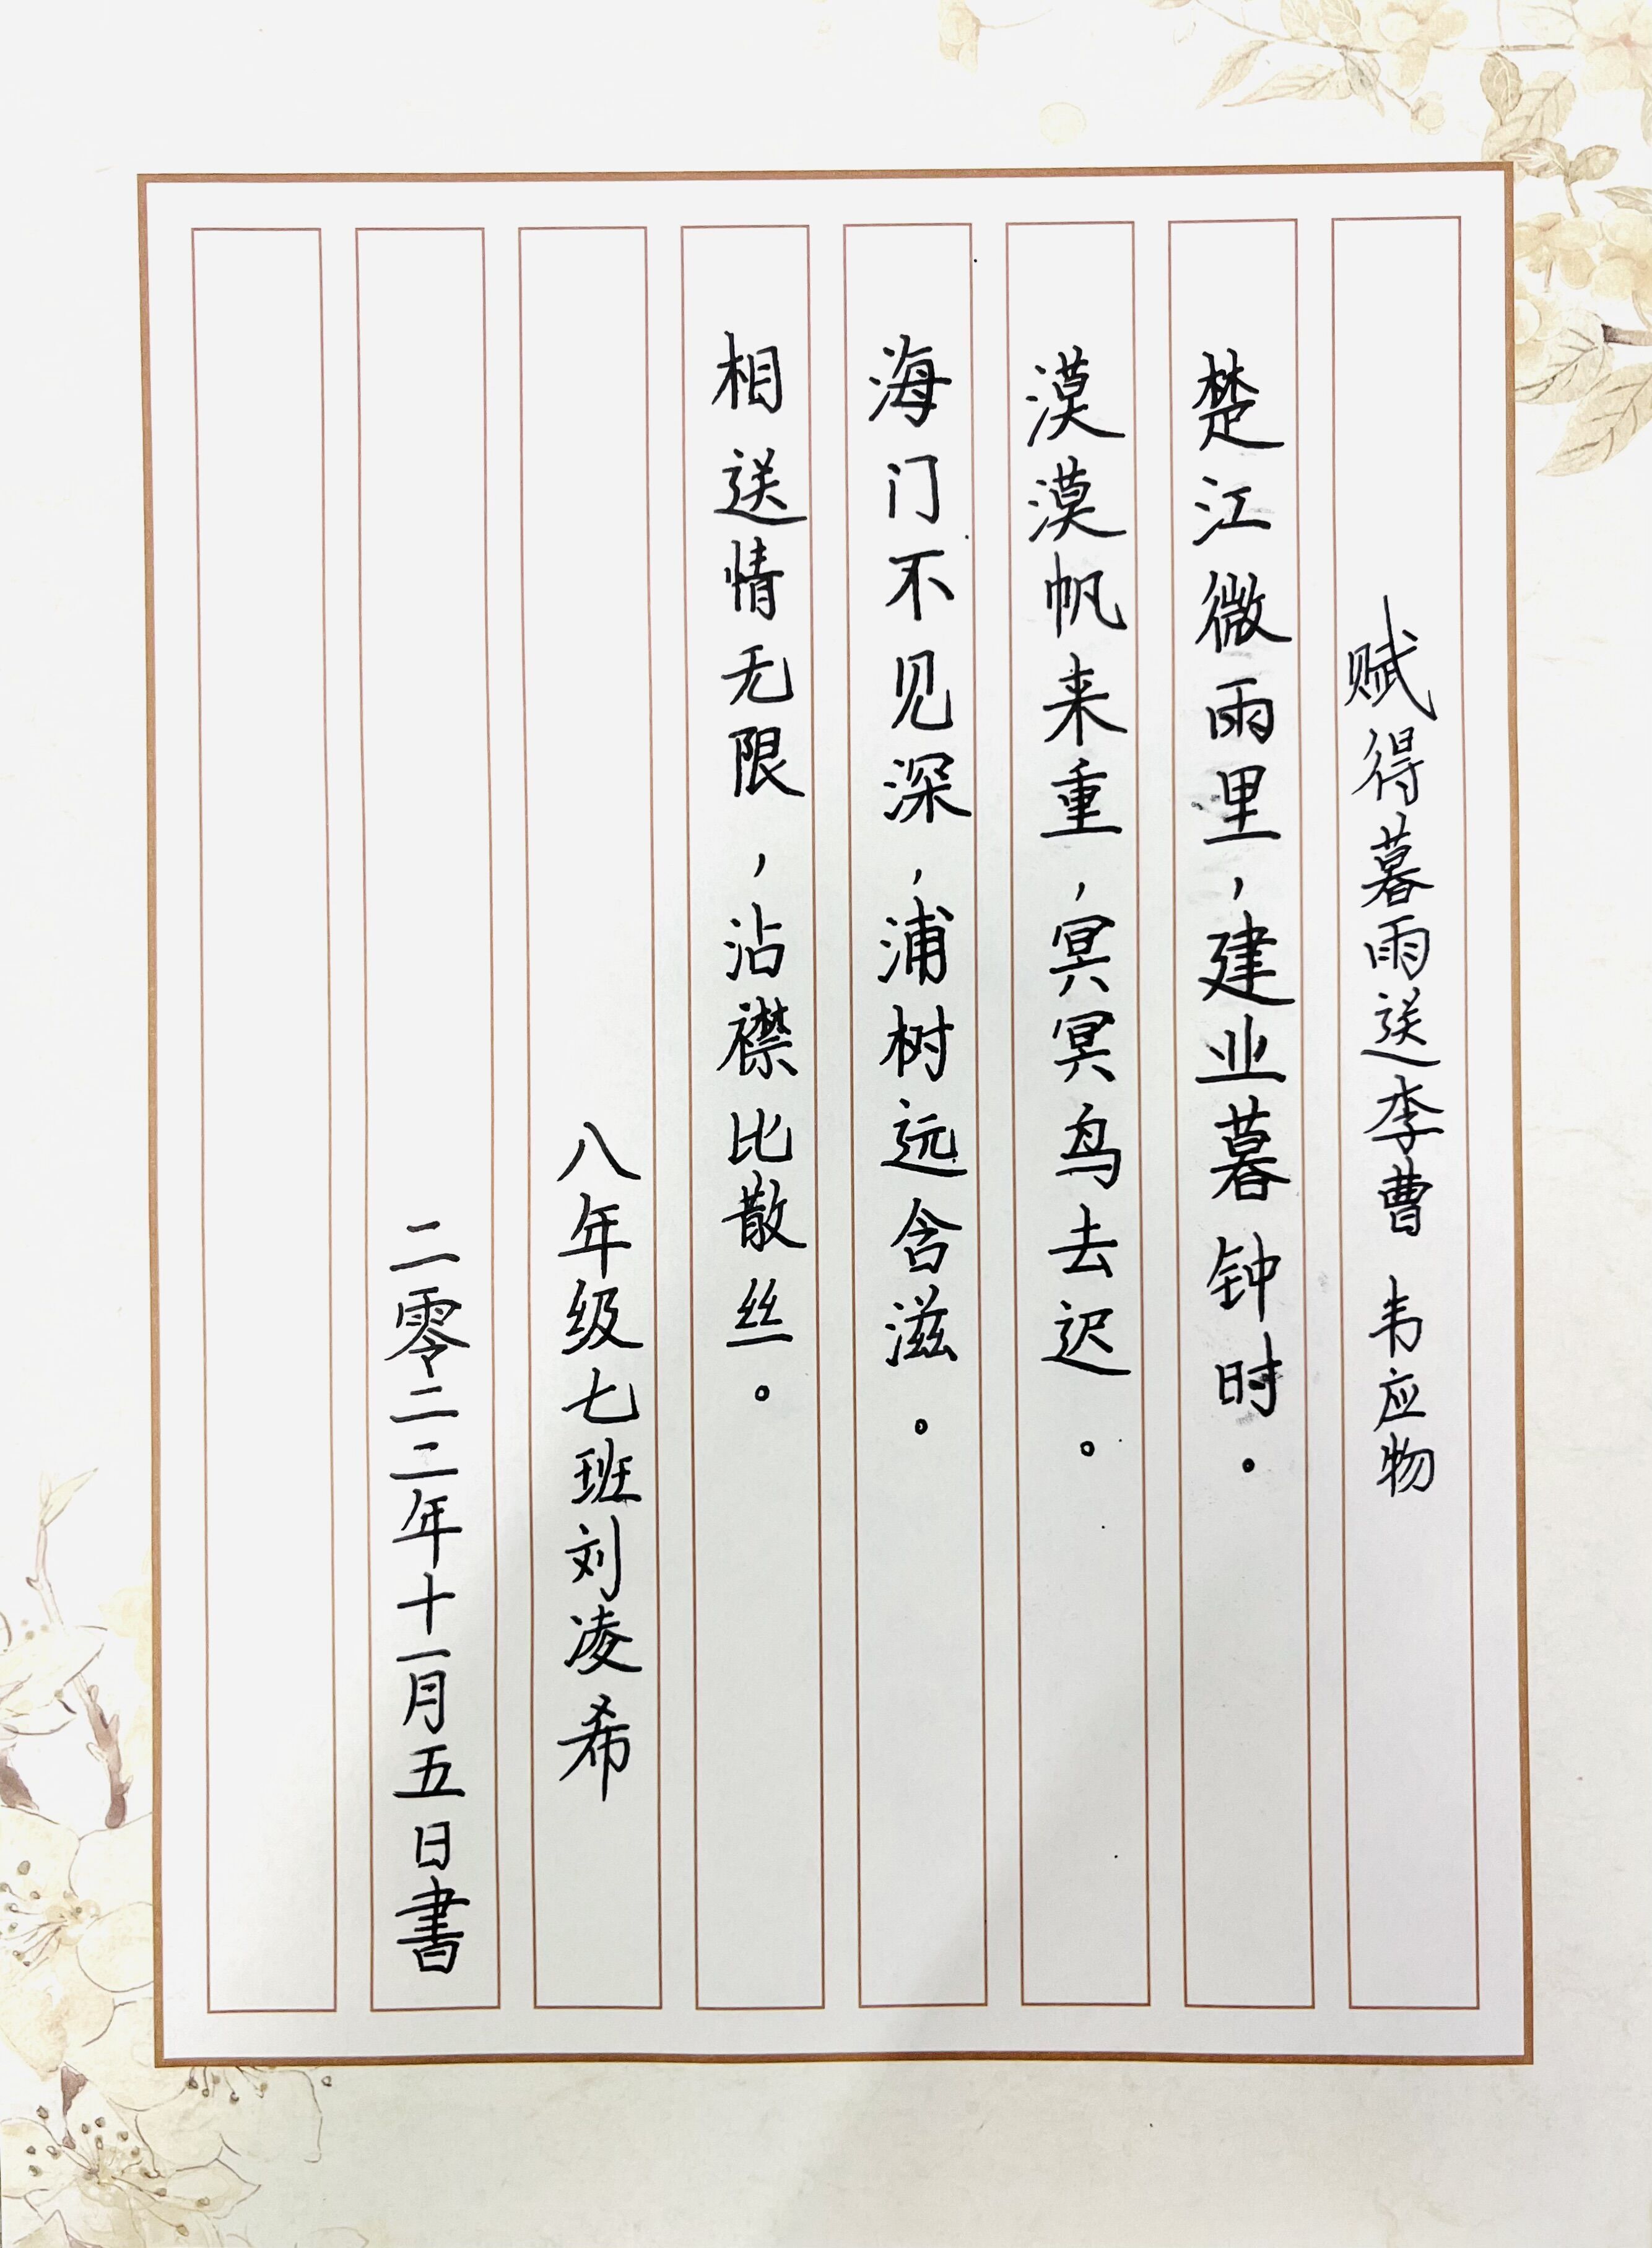 赋得暮雨送李曹 韦应物
楚江微雨里，建业暮钟时。
漠漠帆来重，冥冥鸟去迟。
海门不见深，浦树远含滋。
相送情无限，沾襟比散丝。
八年级七班刘凌希
二零二二年十一月五日書